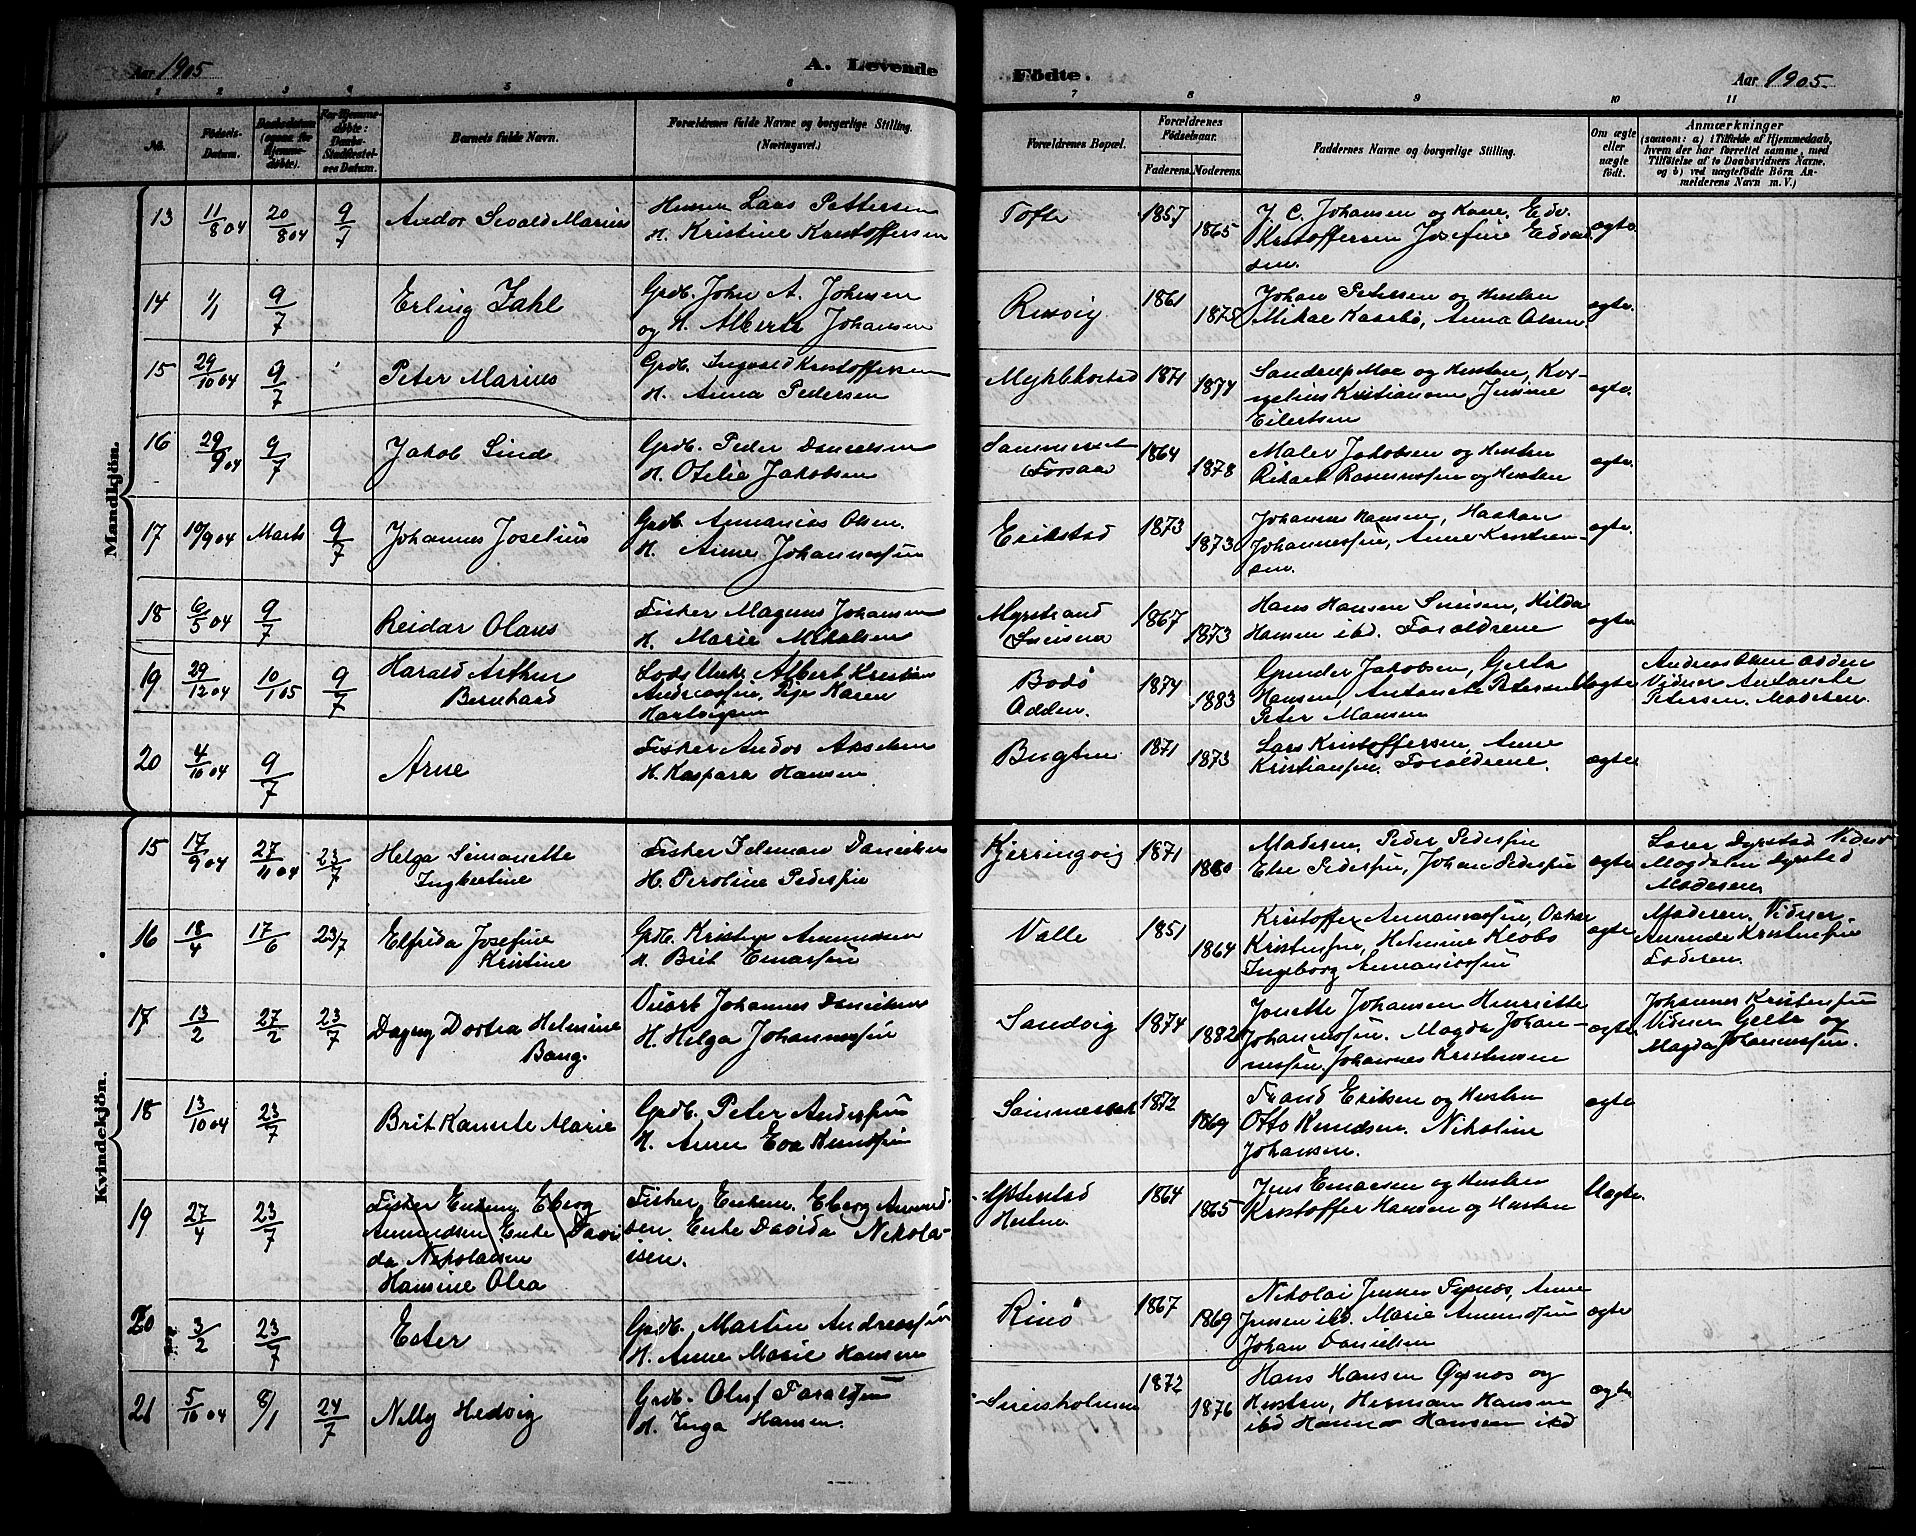 Aar 1905
A. Levende
Födte.
Aar 1905.
1 2 3 4 5 6 7 8 9 10 11
No. Födsels-Datum. Daabsdatum (ogsaa for Hjemmedöbte). For Hjemmedöbte: Daabs Stadfæstelses Datum. Barnets fulde Navn. Forældrenes fulde Navne og borgerlige Stilling. (Næringsvei.) Forældrenes Bopæl. Forældrenes Födselsaar. Faderens. Moderens. Faddernes Navne og borgerlige Stilling. Om ægte eller uægte födt. Anmærkninger
(saasom: a) i Tilfælde af Hjemmedaab, hvem der har forrettet samme, med Tilföielse af to Daabsvidners Navne, og b) ved uægtefödte Börn Anmelderens Navn m. V.)
Mandkjön.
13 11/8 04 20/8 04 9/7 Andor Sevald Marius
Lars Pettersen
H. Kristine Kristoffersen
Tofte 1857 1865
J. C. Johansen og Kone, Edv.
Kristoffersen Josefine Edvardsen. ægte
14 1/1 9/7 Erling Zahl
Grdb. John A. Johnsen
og H. Alberte Johansen
Rinvig 1861 1875
Johan Petersen og Husten
Mikael Kasebö, Anna Olsen ægte
15 29/10 04 9/7 Peter Marius
Grdb. Ingvald Kristoffersen
H. Anna Pedersen
Myklebostad 1871 1874
Moe og Husten, Kor-
nelius Kristiansen
Eilertsen ægte
16 29/9 04 9/7 Jakob Lind
Grdb. Peder Danielsen
H. Otelie Jakobsen
Sommerset
Forsaa 1864 1878
Maler Jakobsen og Husten
Rikard Rasmussen og Husten ægte
17 10/9 04 Marts 9/7 Johannes Joselius
Grdb. Annanias Olsen.
H. Anne Johannessen
Erikstad 1873 1873
Johannes Hansen, Haakon
Johannessen, Anne Kristen-
sen. ægte
18 6/5 04 9/7 Reidar Olaus
Fisker Magnus Johansen
H. Marie Mikalsen
Myrstrand 1867 1873
Hans Hansen, Hilda
Hansen ibd. Foraldrene ægte
19 29/12 04 10/1 05 9/7 Harald Arthur
Bernhard
Albert Kristian
Andreassen, Pige Karen
Hartvigsen
Bodö
Odden. 1874 1883
Gunder Jakobsen, Gerta
Hansen, Antonette Petersen
Peter Hansen ægte
Andreas Olsen Odden
Vidner Antonette
Petersen. Moderen.
20 4/10 04 9/7 Arne
Fisker Andor Akselsen
H. Kaspara Hansen
Bugten 1871 1873
Lars Kristoffersen, Anne
Kristiansen. Foraldrene. ægte
Kvindekjön.
15 17/9 04 27/11 04 23/7 Helga Simonette
Ingbertine
Fisker Danielsen
H. Peroline Pedersen
Kjerringvig 1871 1880
Moderen, Peder Pedersen
Else Pedersen, Johan Pedersen ægte
Dyrstad Vidner
Magdalen Dyrstad
Moderen
16 18/4 17/6 23/7 Elfrida Josefine
Kristine
Grdb. Kristen Amundsen
H. Brit Einarsen
Valle 1851 1864
Kristoffer Annaniassen, Oskar
Kristensen, Helmine Klobo
Ingeborg Annaniassen ægte
Moderen. Vidner.
Amunda Kristensen
Faderen.
17 13/2 27/2 23/7 Dagny Dortea Helmine
Bang.
Johannes Danielsen
H. Helga Johannessen
Sandvig 1874 1882
Jonette Johansen Henriette
Johannessen. Magda Johan-
nessen, Johannes Kristensen ægte
Johannes Kristensen
Vidner Gerta og
Magda Johannessen.
18 13/10 04 23/7 Brit Hannte Marie
Grdb. Peter Anderssen
H. Anne Eva Knudsen
1872 1869
Trond Eriksen og Husten
Otto Knudsen. Nikoline
Johansen. ægte
19 27/4 23/7 Fisker Enkem. Eberg
Amundsen Enke Davi
da Nikolaisen
Hansine Olea
Fisker, Enkem. Eberg Amund
sen. Enke Davida Nikola-
isen.
1864 1865
Jens Einarsen og Husten
Kristoffer Hansen og Husten Uægte
20 3/2 23/7 Ester
Grdb. Martin Andreassen
H. Anne Marie Hansen
Rinö 1867 1869
Nikolai Jensen, Anne
Jensen ibd. Marie Amundsen
Johan Danielsen ægte
21 5/10 04 8/1 24/7 Nelly Hedvig
Grdb. Oluf Taraldsen
H. Inga Hansen.
1872 1876
Hans Hansen Öynes og
Husten, Herman Hansen
ibd Hanna Hansen ibd ægte